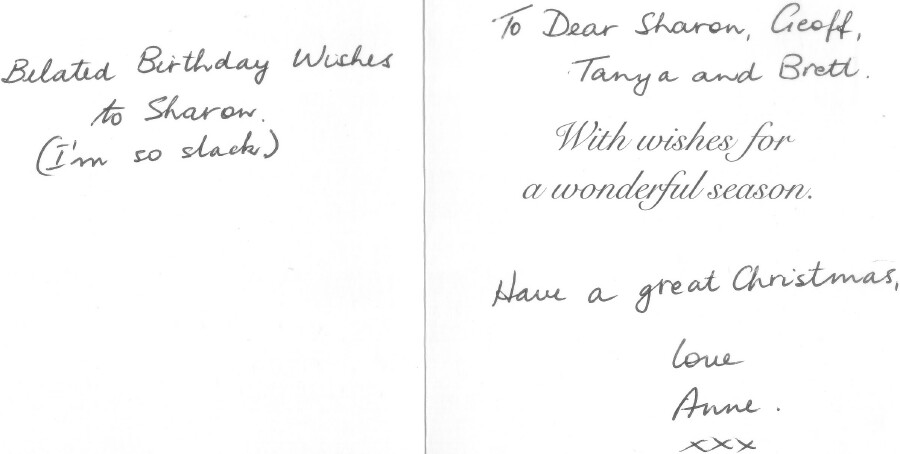 Belated Birthday Wishes
to Sharon.
(I'm so slack.)
To Dear Sharon, Geoff,
Tanya and Brett.
With wishes for
a wonderful season.
Have a great Christmas,
love
Anne.
xxx